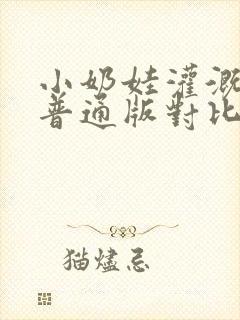 小奶娃灌溉
普通版對比
猫燼忌